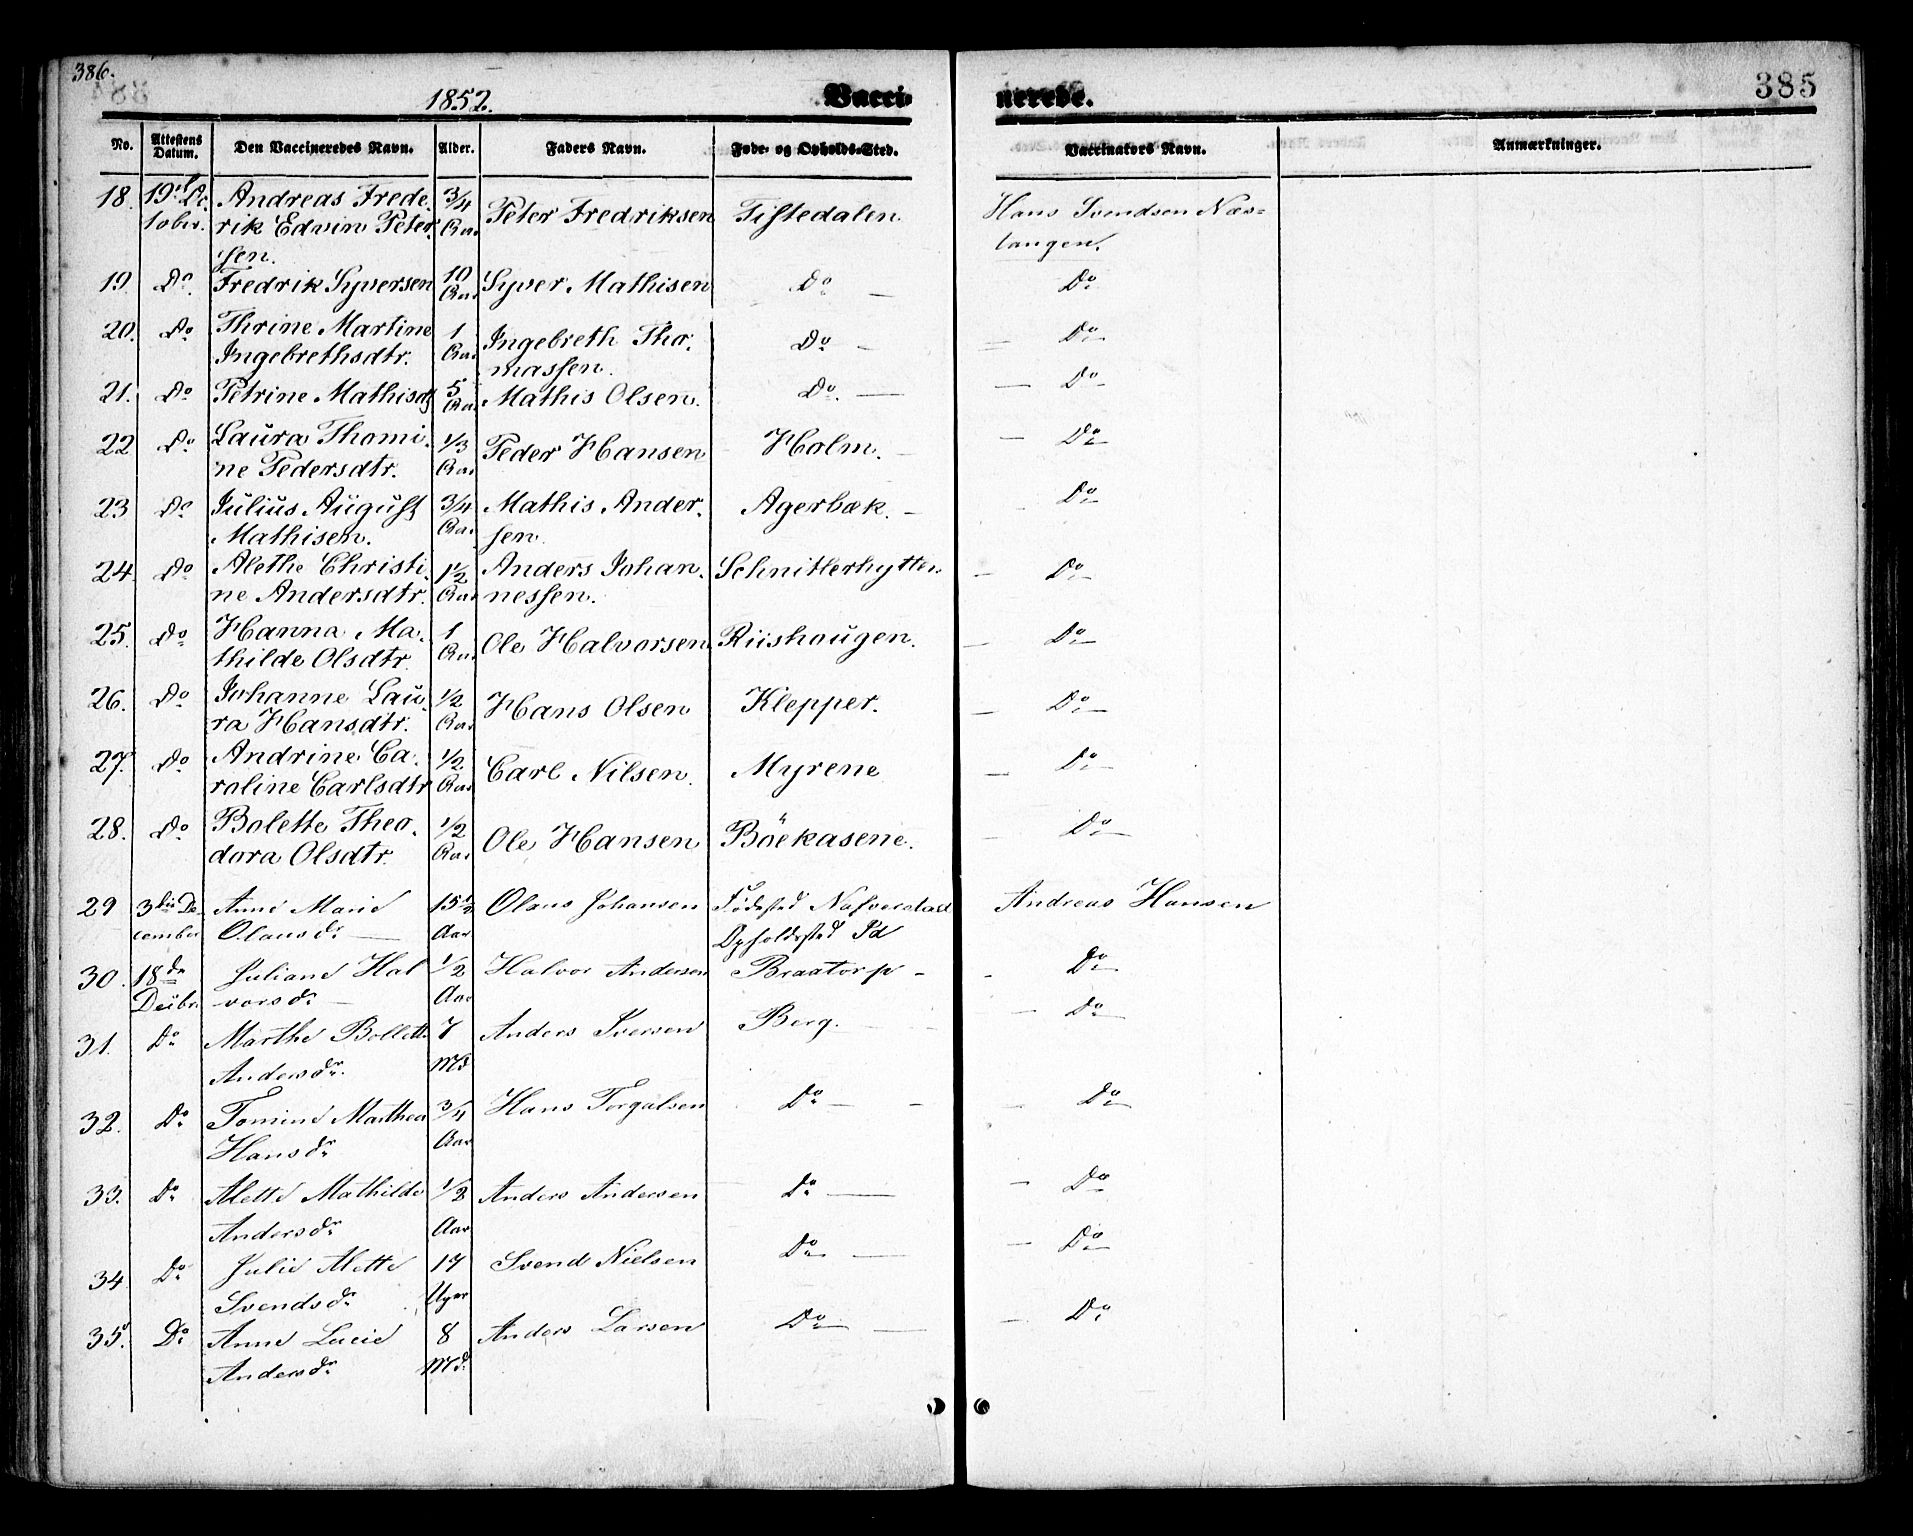 386.
385
1852.
Vacci-
nerede.
No. Attestens Datum. Den Vaccineredes Navn. Alder. Faders Navn. Føde- og Opholds-Sted. Vaccinators Navn. Anmærkninger.
18. 19de Oc- Andreas Frede- 3/4 Peter Fredriksen Tistedalen. Hans Svendsen Næs-
tober. rik Edvin Peter- Aar tangen.
sen.
19. Do. Fredrik Syversen 10 Aar Syver Mathisen Do. — Do.
20. Do Thrine Martine 1 Ingebreth Tho- Do — — Do.
Ingebrethsdtr. Aar massen.
21. Do Petrine Mathisd 5 Aar Mathis Olsen. Do. — — Do
22 Do Laura Thomi- 1/3 Peder Hansen Holm. — — Do
ne Pedersdtr. Aar
23 Do Julius August 3/4 Mathis Ander- Agerbæk. — Do
Mathisen. Aar sen.
24 Do Alethe Christi- 1 1/2 Anders Johan- Schnitlerhytten — Do
ne Andersdtr. Aar nessen.
25. Do Hanna Ma- 1 Ole Halvorsen Riishougen. — Do
thilde Olsdtr. Aar
26. Do Johanne Lau- 1/2 Hans Olsen Klepper. — Do
ra Hansdtr. Aar
27. Do Andrine Ca- 1/2 Carl Nilsen. Myrene — Do
roline Carlsdtr Aar
28. Do Bolette Theo- 1/2 Ole Hansen Böekasene. — Do
dora Olsdtr. Aar
29 3die De- Anne Marie 15 1/2 Olaus Johansen Födested Nafverstad Andreas Hansen
cember Olausdr — Aar Opholdssted Id
30. 18de Juliane Hal 1/2 Halvor Andersen Braatorp — — Do
Decbr. vorsdr — Aar
31. Do Marthe Bollette 7 Anders Iversen Berg. — Do
Andersdr. Md
32. Do Tomine Marthea 3/4 Hans Torgalsen Do — — — Do
Hansdr Aar
33. Do Alette Mathilde 1/2 Anders Andersen Do — — Do
Andersdr Aar
34 Do Julie Alette 17 Svend Nielsen Do — — Do
Svendsdr Uger
35. Do Anne Lucie 8 Anders Larsen Do — — Do
Andersdr Md.